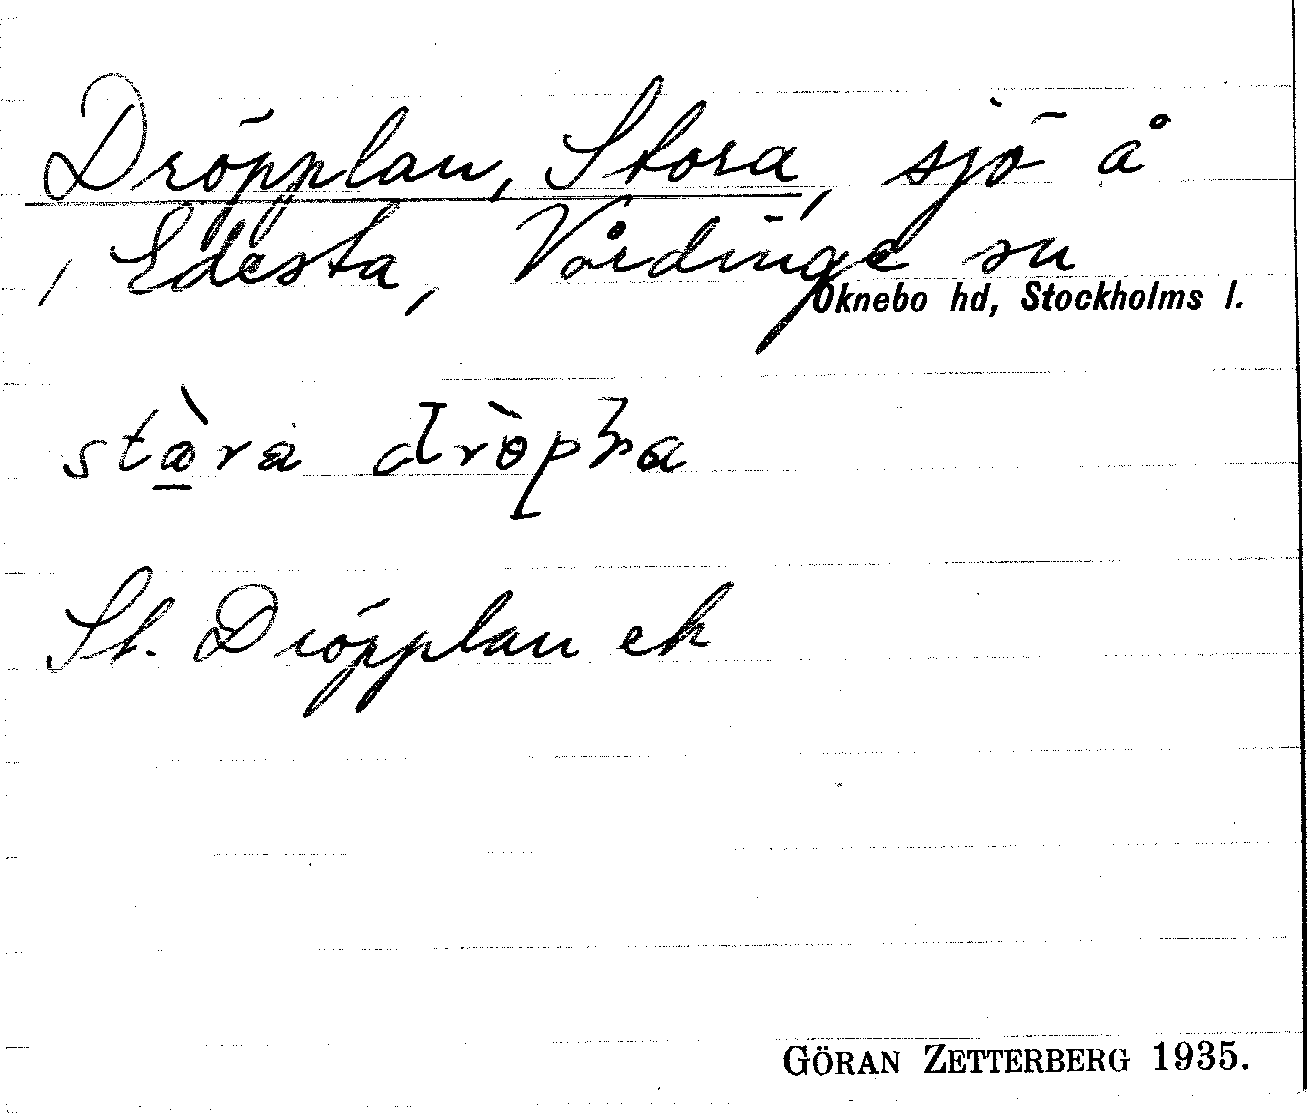 Dröpplan, Stora, sjö å
/ Edesta, Vårdinge sn
Öknebo hd, Stockholms l.
St. Dröpplan ek
GÖRAN ZETTERBERG 1935.